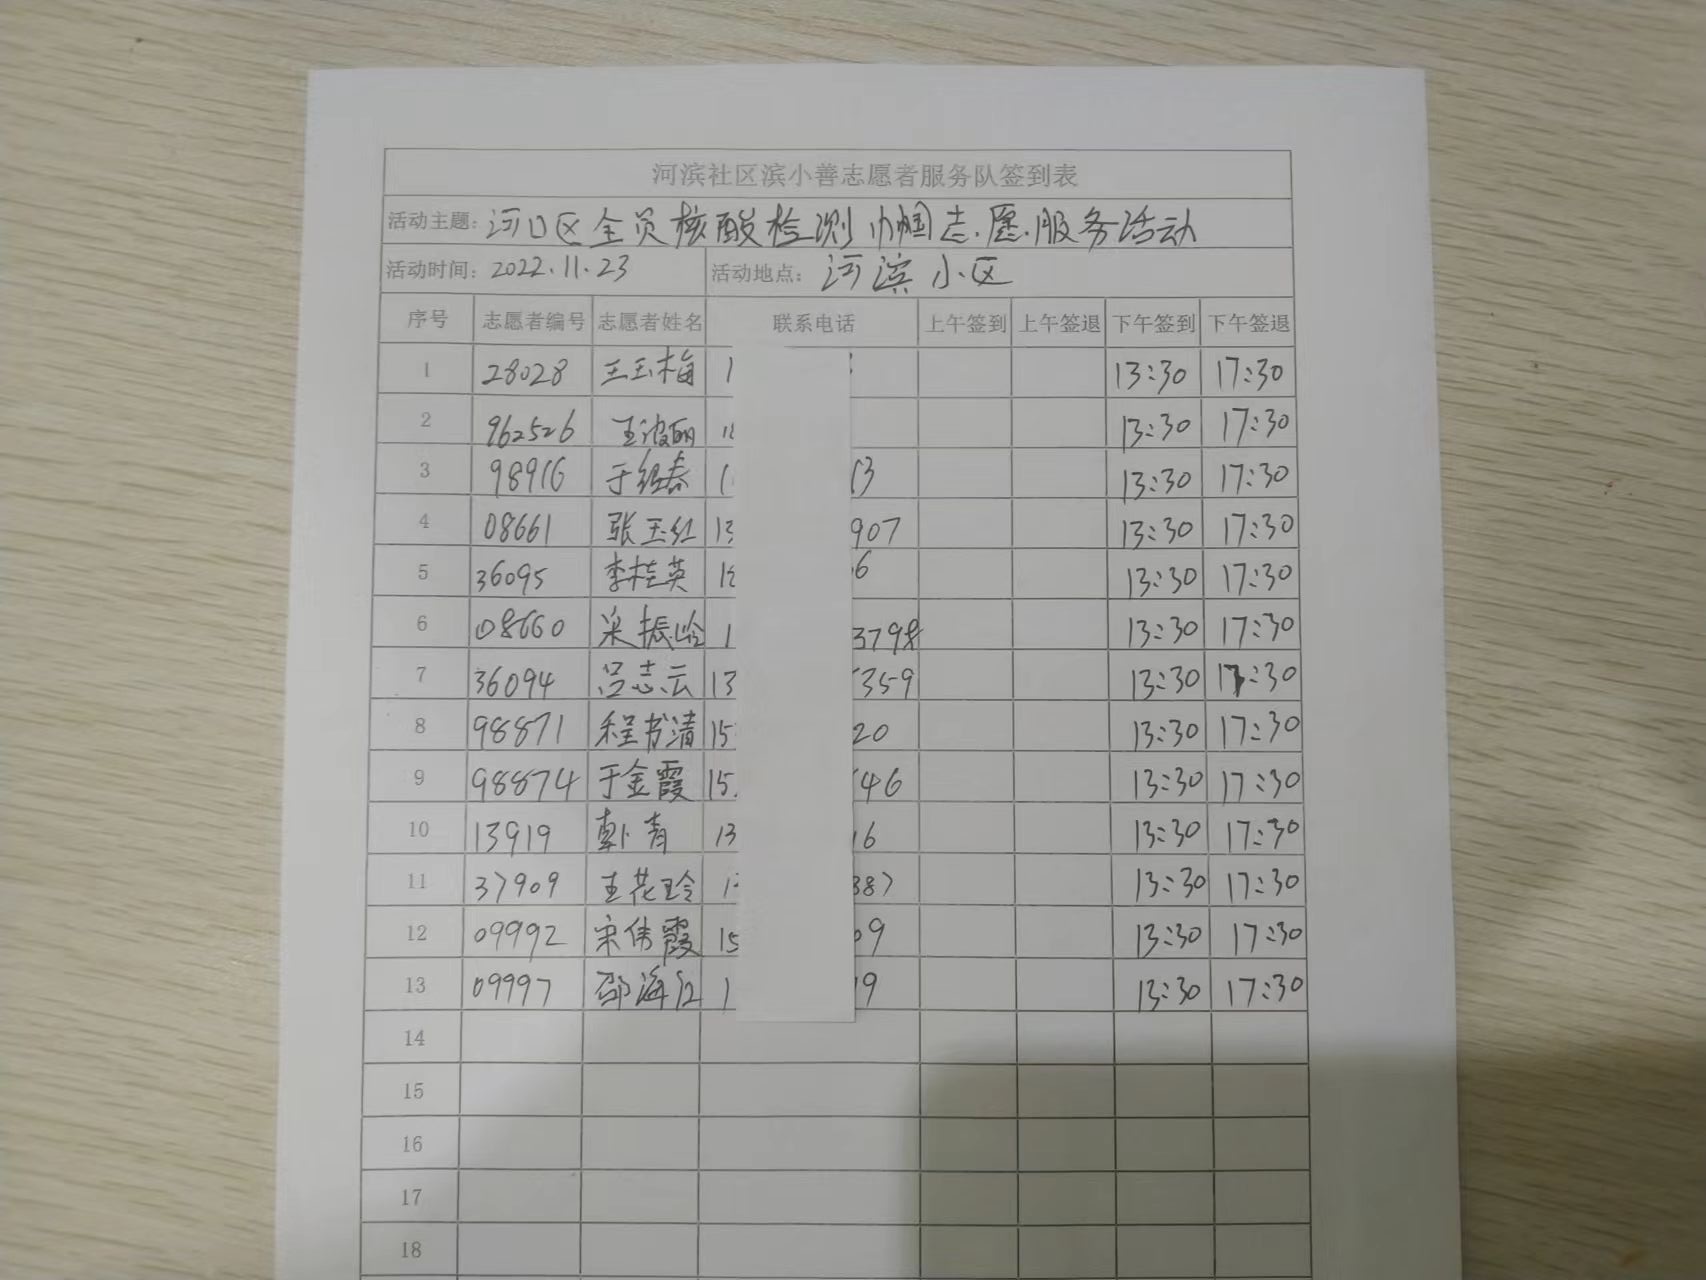 河滨社区滨小善志愿者服务队签到表
活动主题：河口区全员核酸检测巾帼志愿服务活动
活动时间：2022.11.23 活动地点：河滨小区
序号 志愿者编号 志愿者姓名 联系电话 上午签到 上午签退 下午签到 下午签退
1 28028 王玉梅 1 13:30 17:30
2 962526 王波丽 13:30 17:30
3 98916 于绍春 1 13 13:30 17:30
4 08661 张玉红 13 907 13:30 17:30
5 36095 李桂英 6 13:30 17:30
6 08660 梁振岭 1 3798 13:30 17:30
7 36094 吕志云 13 359 13:30 17:30
8 98871 程书清 15 20 13:30 17:30
9 98874 于金霞 15 46 13:30 17:30
10 13919 韩青 13 16 13:30 17:30
11 37909 王花玲 1 887 13:30 17:30
12 09992 宋伟霞 15 09 13:30 17:30
13 09997 邵海红 1 19 13:30 17:30
14
15
16
17
18